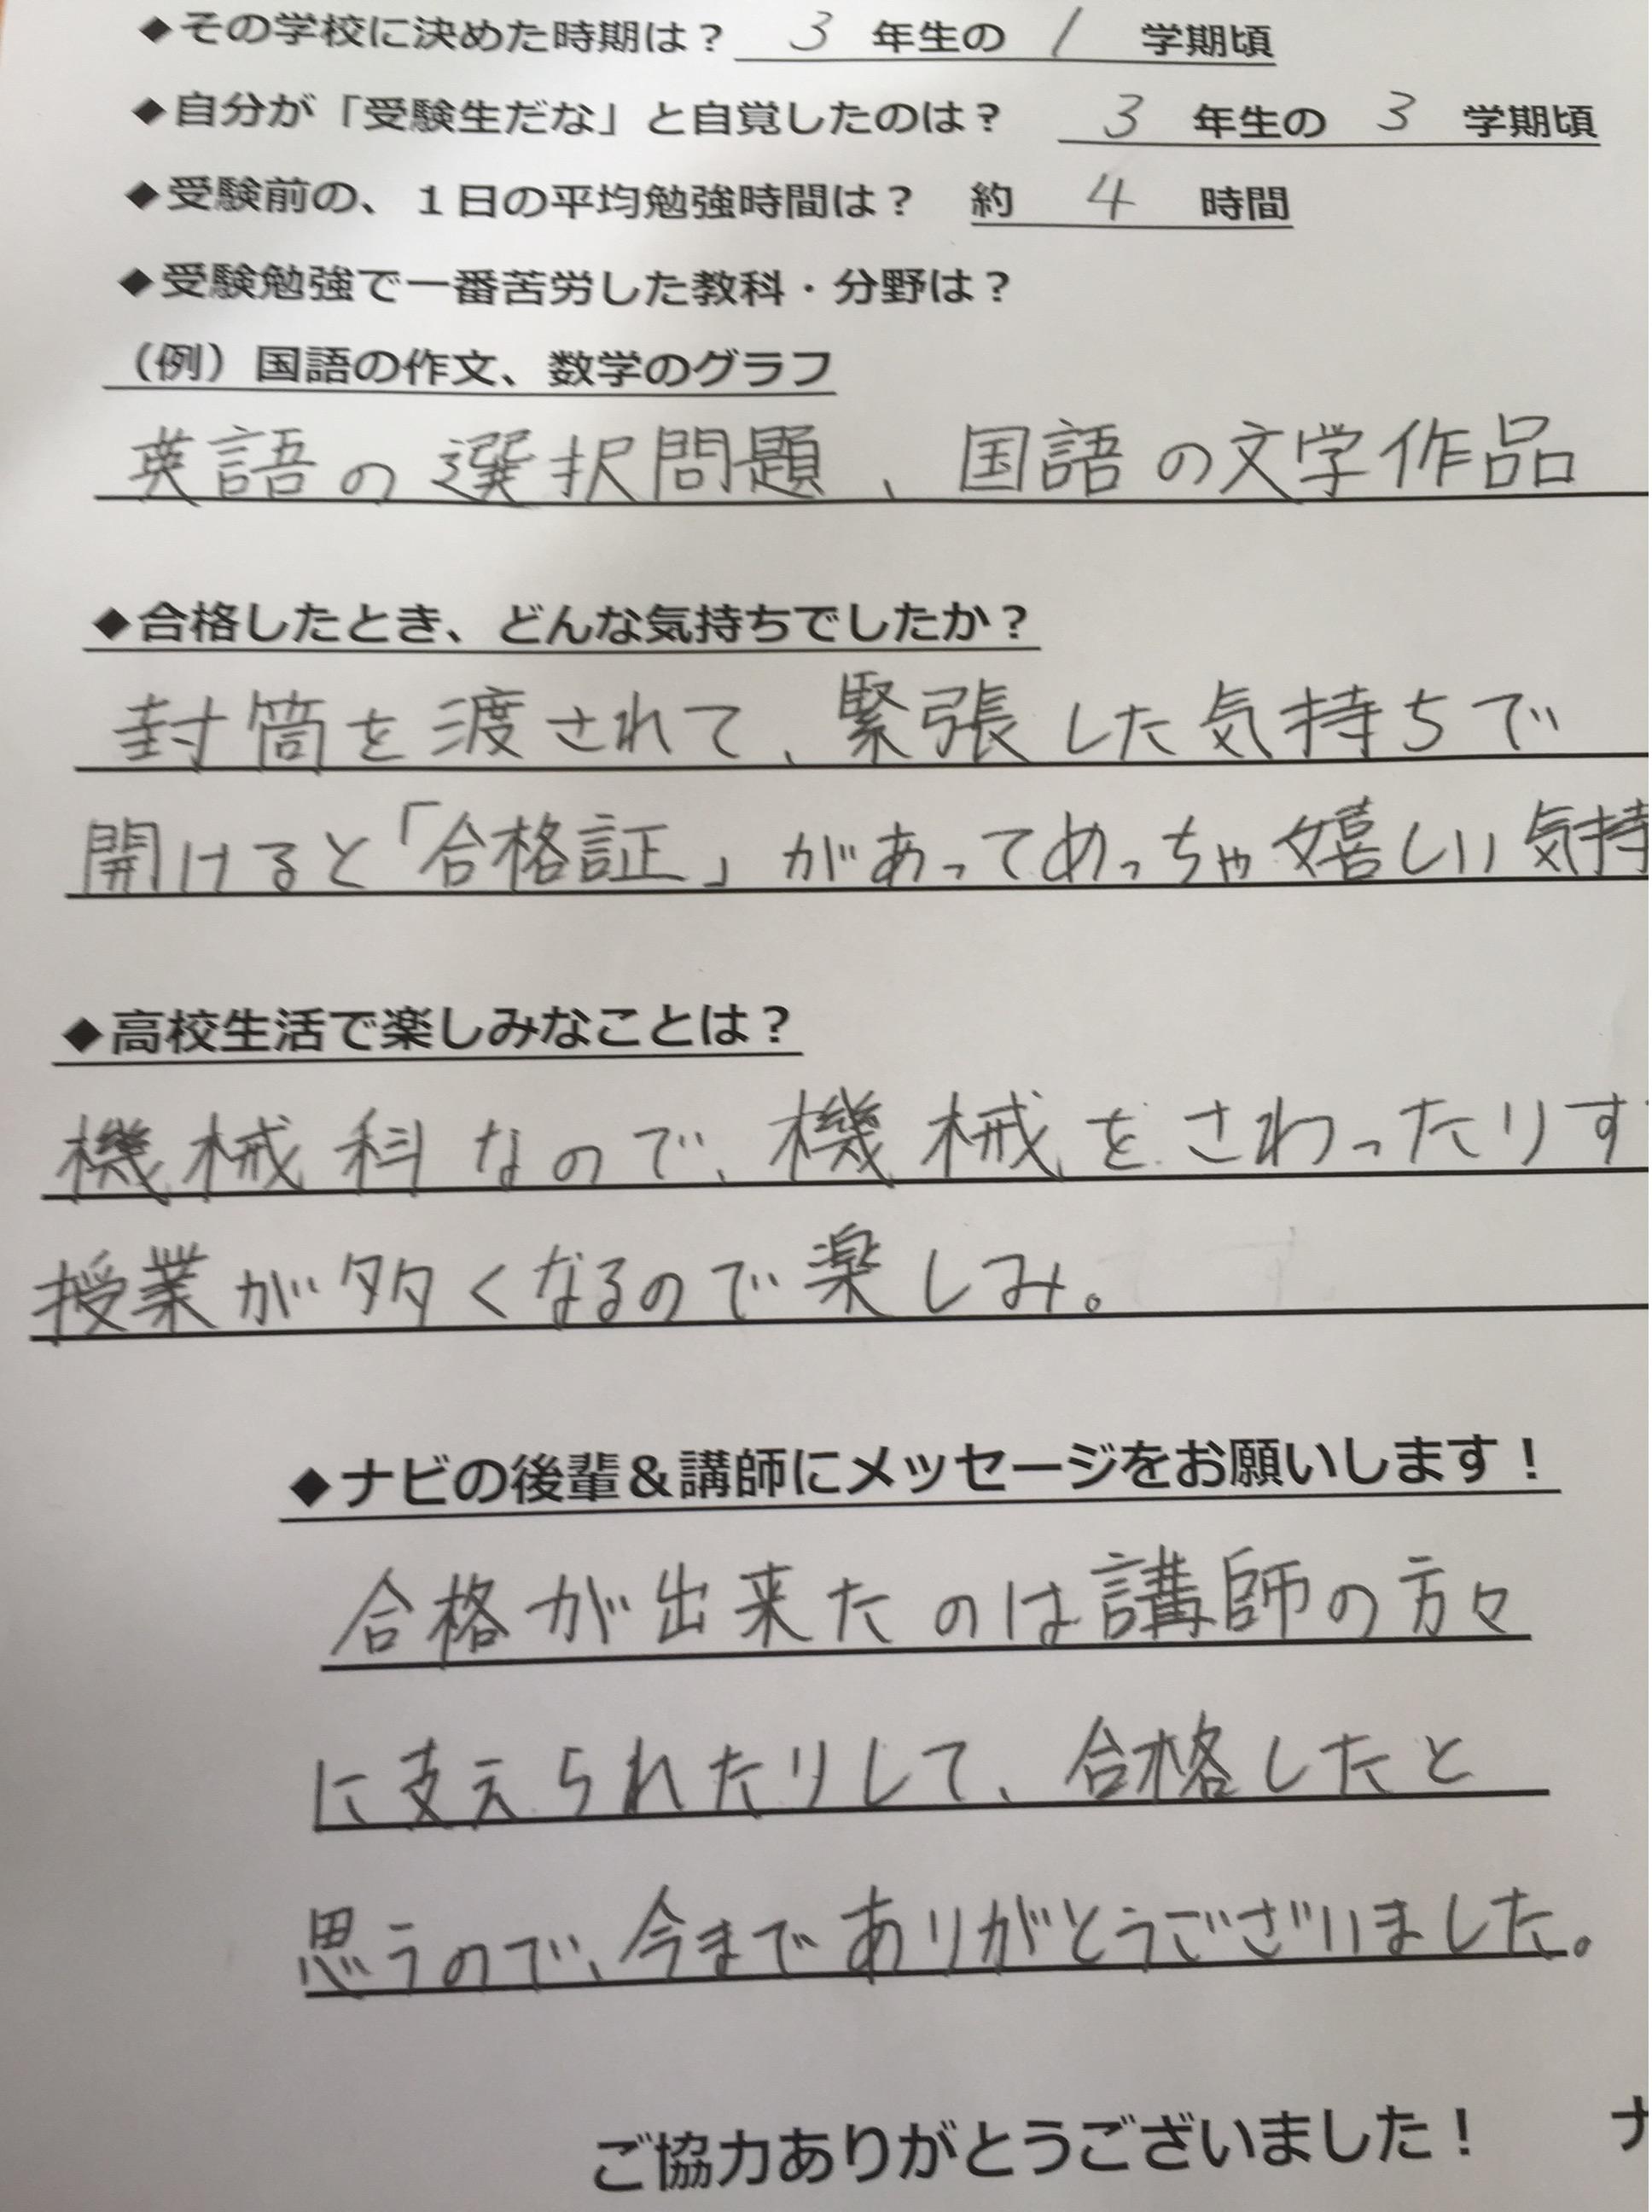 ◆その学校に決めた時期は? 3 年生の 1 学期頃
◆自分が「受験生だな」と自覚したのは? 3 年生の 3 学期頃
◆受験前の、1日の平均勉強時間は? 約 4 時間
◆受験勉強で一番苦労した教科・分野は?
(例)国語の作文、数学のグラフ
英語の選択問題、国語の文学作品
◆合格したとき、どんな気持ちでしたか?
封筒を渡されて、緊張した気持ちで
開けると「合格証」があってめっちゃ嬉しい気持
◆高校生活で楽しみなことは?
機械科なので、機械をさわったりす
授業が多くなるので楽しみ。
◆ナビの後輩&講師にメッセージをお願いします!
合格が出来たのは講師の方々
に支えられたりして、合格したと
思うので、今までありがとうございました。
ご協力ありがとうございました! ナ